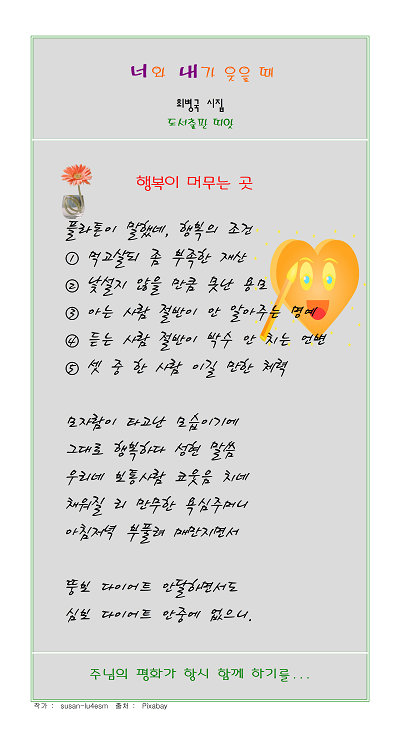 너와 내가 웃을 때
최병국 시집
도서출판 띠앗
행복이 머무는 곳
플라톤이 말했네, 행복의 조건
① 먹고살되 좀 부족한 재산
② 낯설지 않을 만큼 못난 용모
③ 아는 사람 절반이 안 알아주는 명예
④ 듣는 사람 절반이 박수 안 치는 언변
⑤ 셋 중 한 사람 이길 만한 체력
모자람이 타고난 모습이기에
그대로 행복하다 성현 말씀
우리네 보통사람 코웃음 치네
채워질 리 만무한 욕심주머니
아침저녁 부풀려 매만지면서
뚱보 다이어트 안달하면서도
심보 다이어트 안중에 없으니.
주님의 평화가 항시 함께 하기를...
작가 : susan-lu4esm 출처 : Pixabay